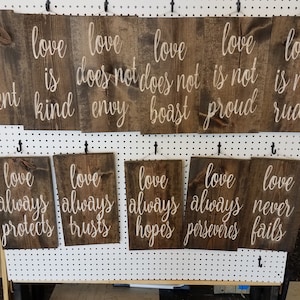 ent
love
is
kind
love
does not
envy
love
does not
boast
love
is not
proud
lo
is
rud
love
always
protects
love
always
trusts
love
always
hopes
love
always
perseveres
love
never
fails